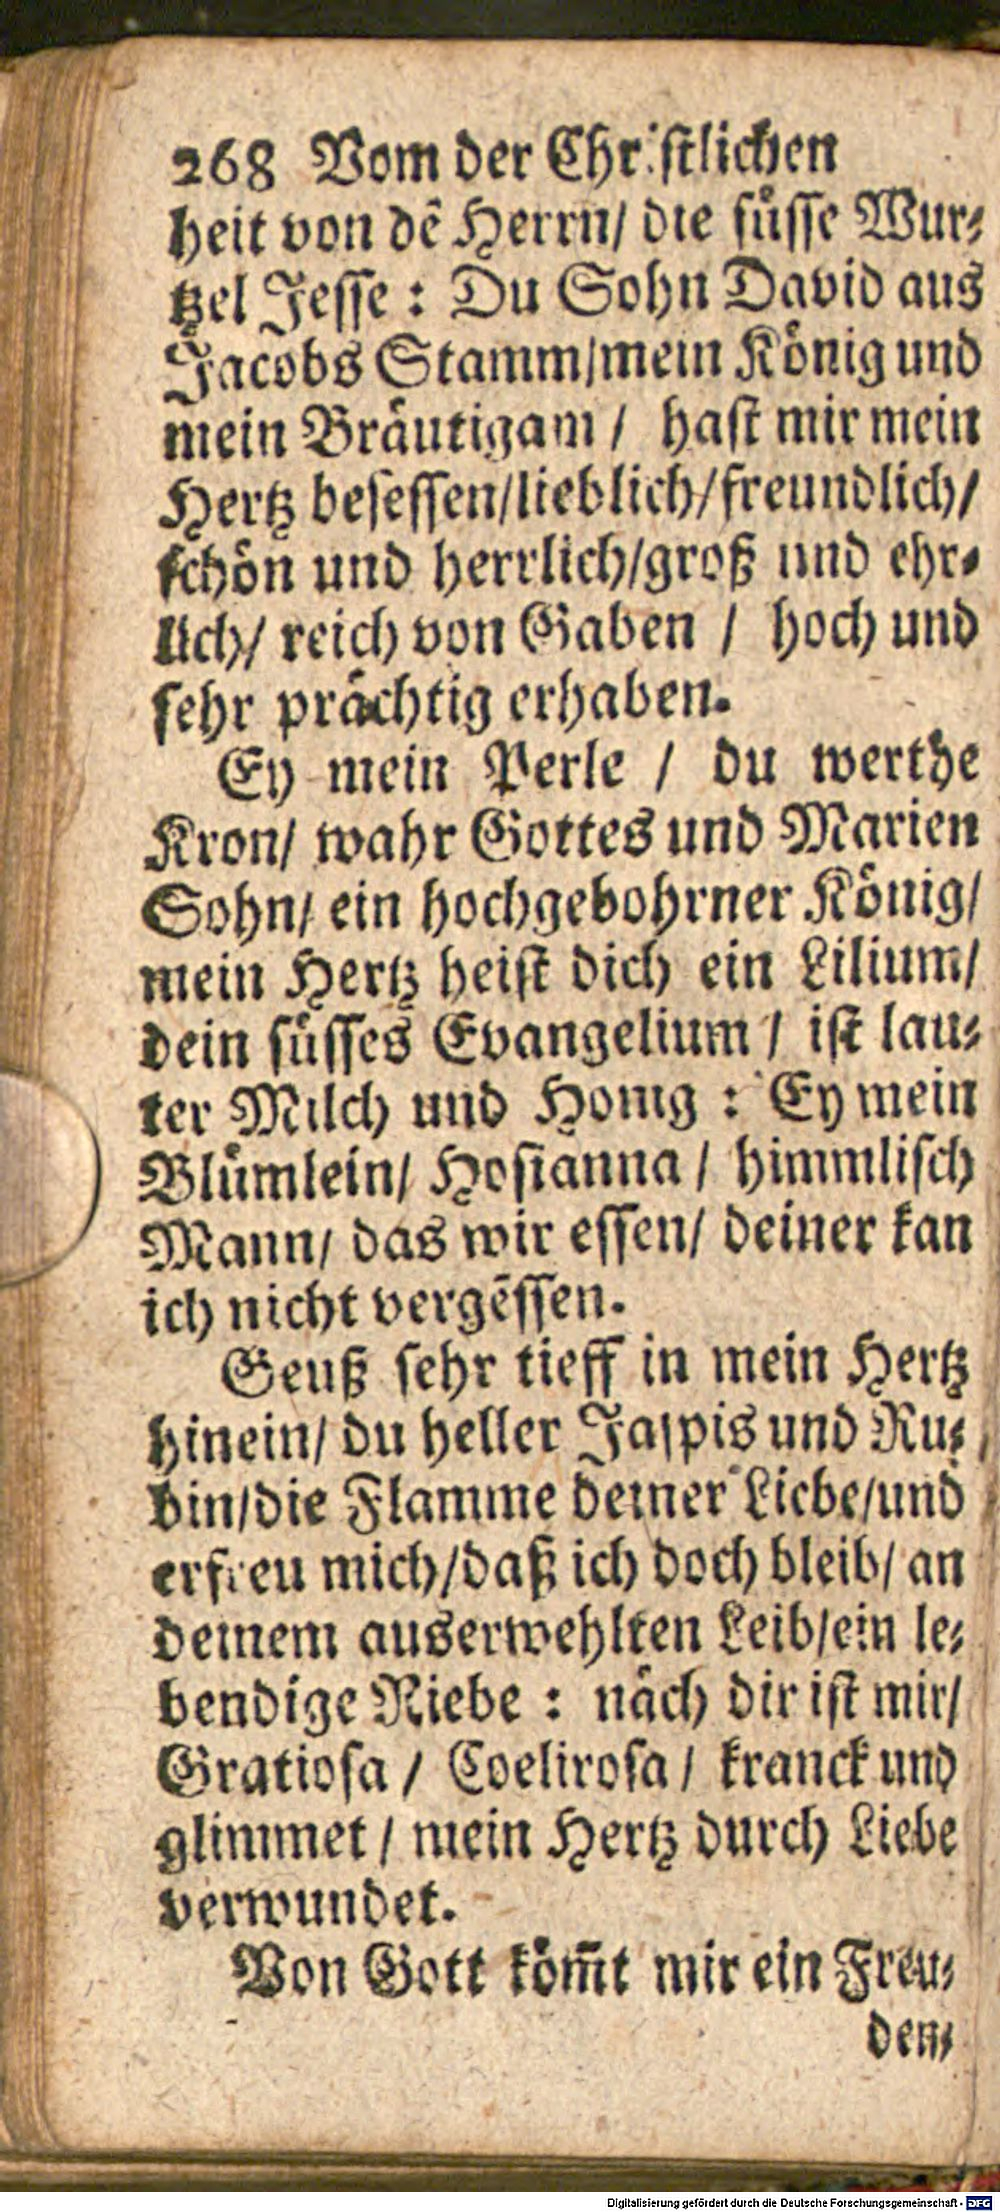 268 Vom der Chriſtlichen
heit von dẽ Herrn/ die ſuͤſſe Wur⸗
tzel Jeſſe : Du Sohn David aus
Jacobs Stamm/mein Koͤnig und
mein Braͤutigam / haſt mir mein
Hertz beſeſſen/lieblich/freundlich/
ſchoͤn und herrlich/groß und ehr⸗
lich/ reich von Gaben / hoch und
ſehr praͤchtig erhaben.
Ey mein Perle / du werthe
Kron/ wahr Gottes und Marien
Sohn/ ein hochgebohrner Koͤnig/
mein Hertz heiſt dich ein Lilium/
dein ſuͤſſes Evangelium / iſt lau⸗
ter Milch und Honig : Ey mein
Bluͤmlein/ Hoſianna / himmliſch
Mann/ das wir eſſen/ deiner kan
ich nicht vergẽſſen.
Geuß ſehr tieff in mein Hertz
hinein/ du heller Jaſpis und Ru⸗
bin/die Flamme deiner Liebe/und
erfreu mich/daß ich doch bleib/ an
deinem auserwehlten Leib/ein le⸗
bendige Riebe : naͤch dir iſt mir/
Gratioſa / Coeliroſa / kranck und
glimmet / mein Hertz durch Liebe
verwundet.
Von Gott koͤm̃t mir ein Freu⸗
den⸗
Digitalisierung gefördert durch die Deutsche Forschungsgemeinschaft - DFG